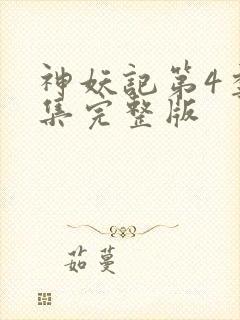 神妖記第4季
集完整版
茹蔓